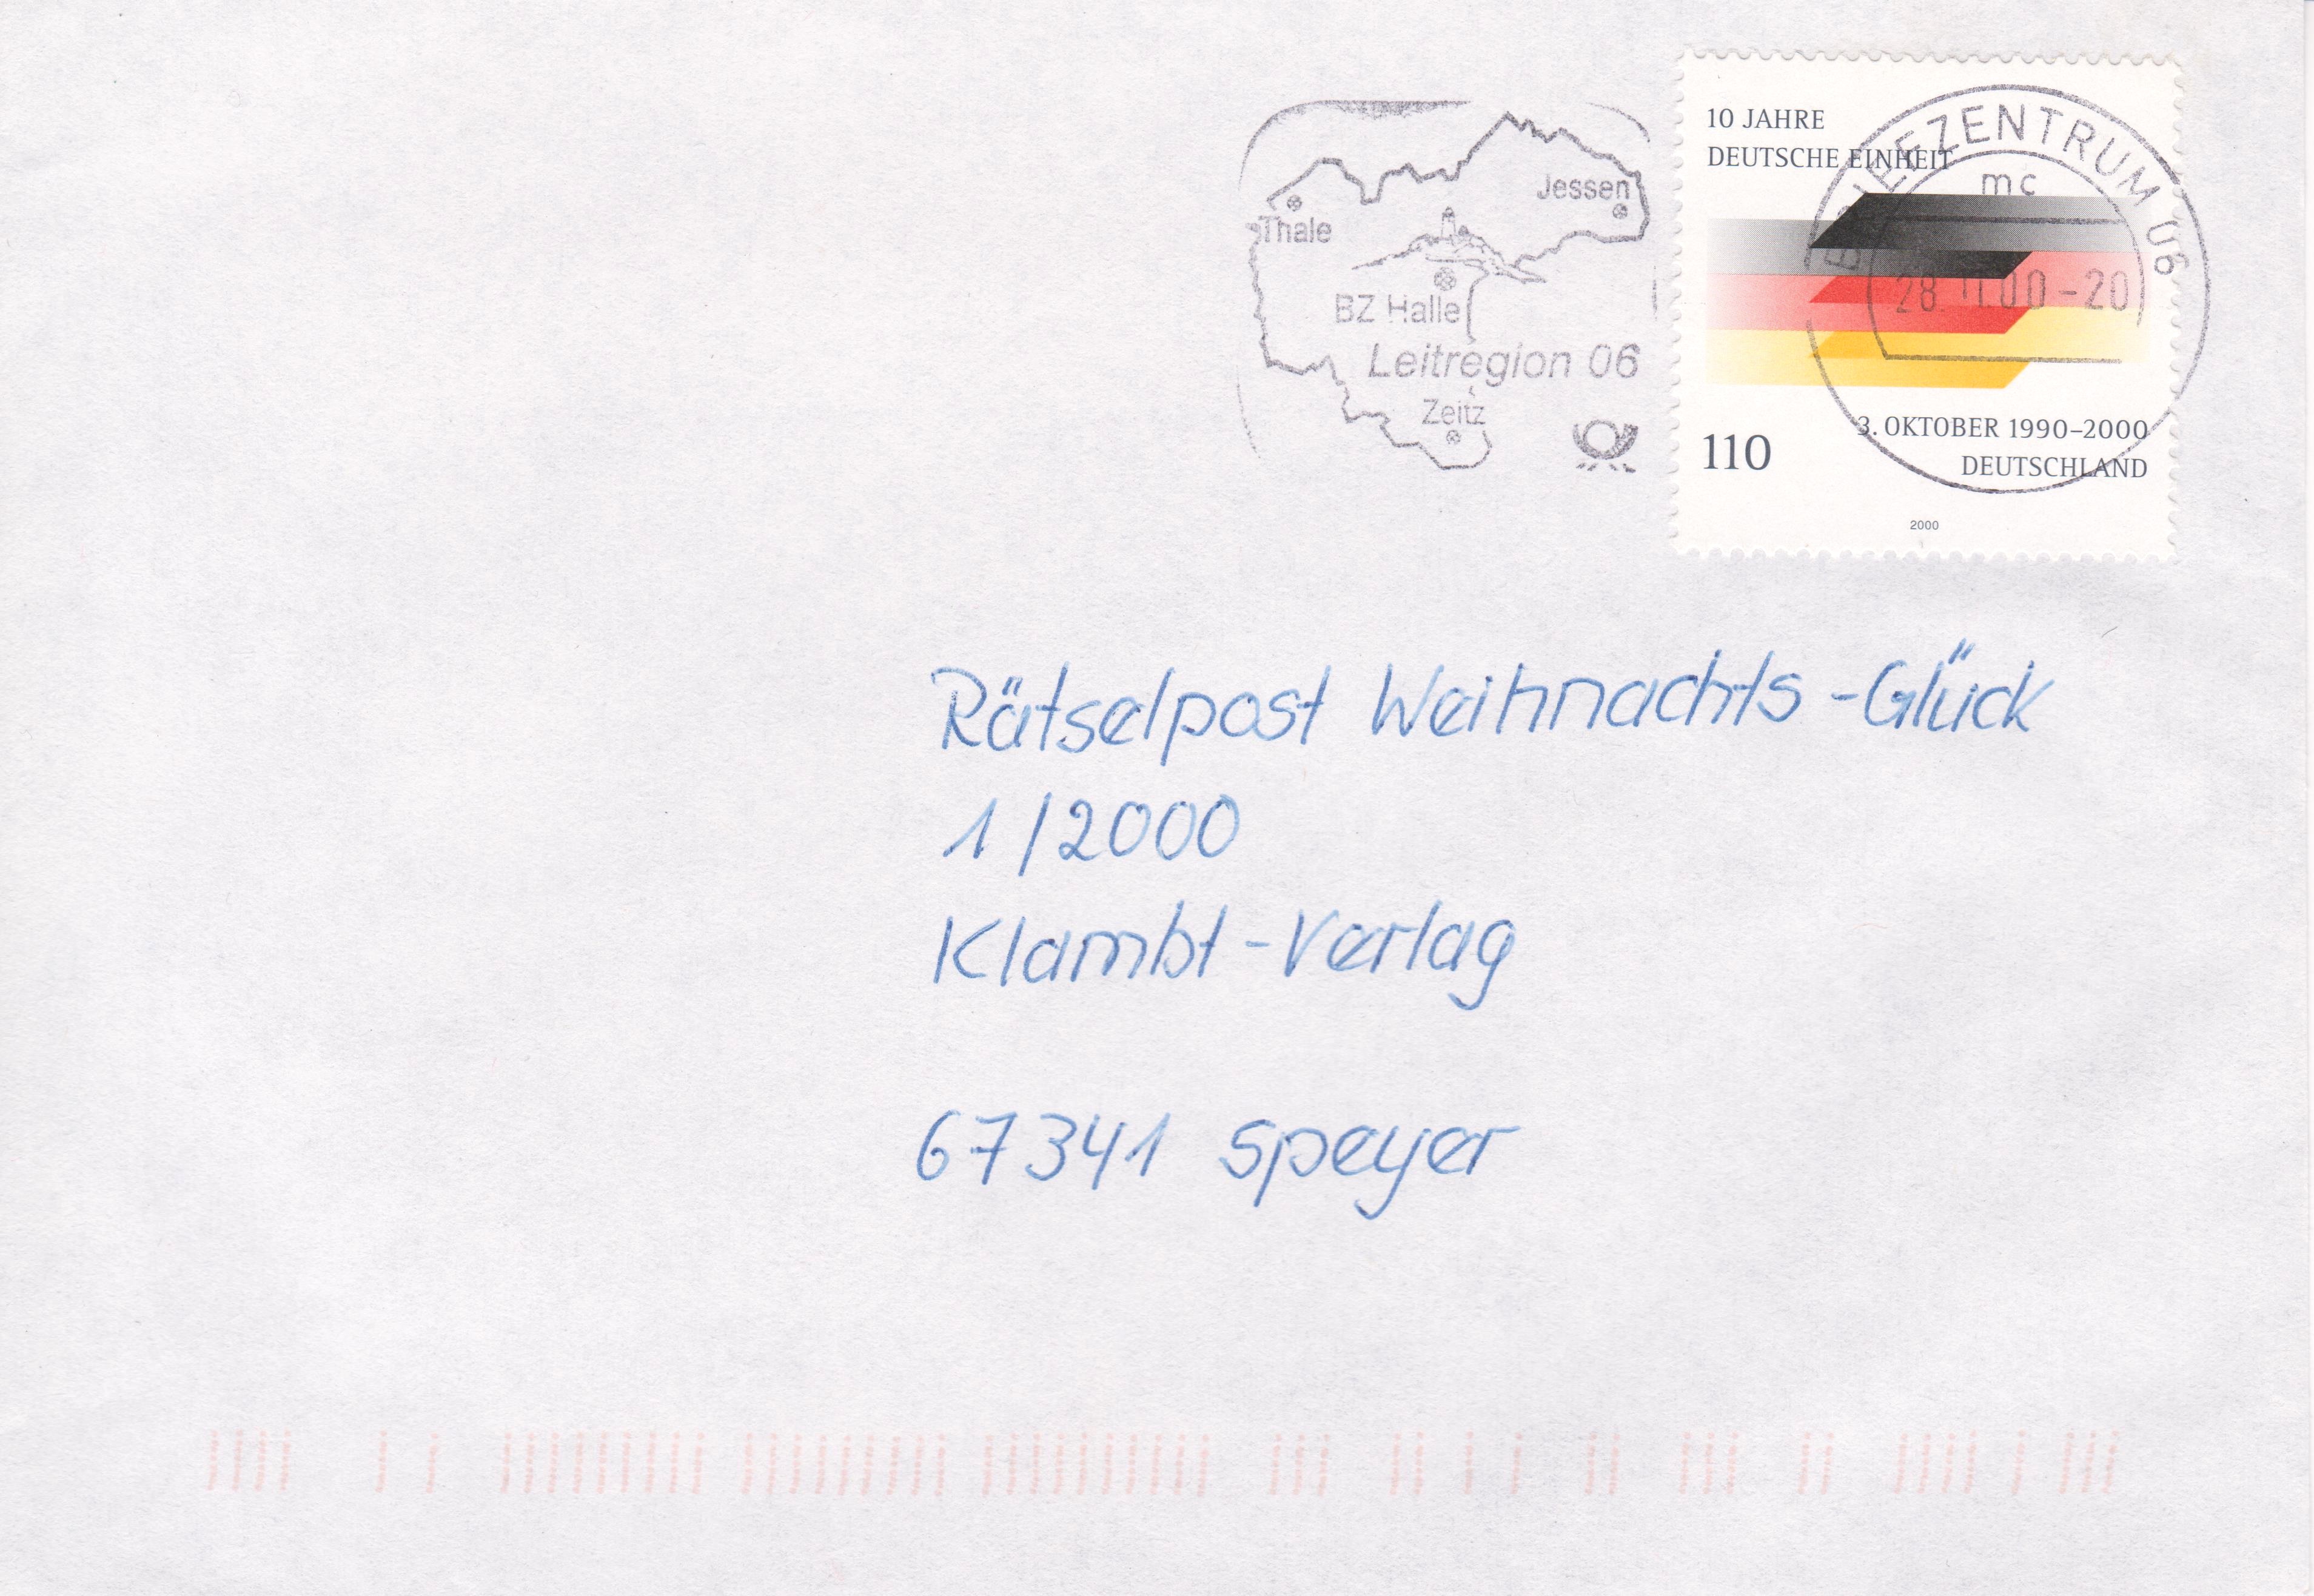 10 JAHRE
DEUTSCHE EINHEIT
BRIEFZENTRUM 06
mc
28.11.00-20
3. OKTOBER 1990–2000
110
DEUTSCHLAND
2000
Jessen
Thale
BZ Halle
Leitregion 06
Zeitz
Rätselpost Weihnachts-Glück
1/2000
Klambt-Verlag
67341 Speyer